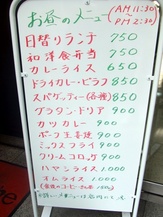 お昼のメニュー (AM 11:30 〜 PM 2:30)
日替りランチ 750
和洋食弁当 750
カレーライス 650
ドライカレーピラフ 850
スパゲッティー(各種) 850
グラタン・ドリア 900
カツカレー 900
ポーク生姜焼 900
ミックスフライ 900
クリームコロッケ 900
ハヤシライス 1,000
オムライス 1,000